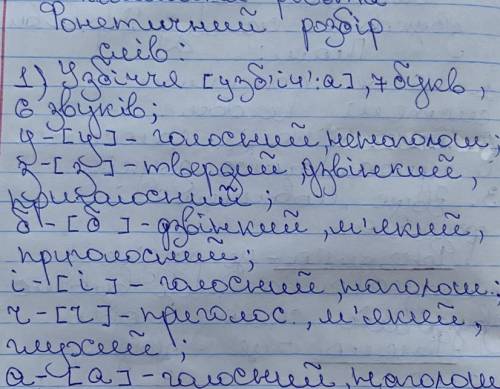 Фонетичний розбір
слів:
1) Узбіччя [узб'іч':а], 7 букв,
6 звуків;
у-[у]-голосний, ненаголош;
з-[з]-твердий, дзвінкий,
приголосний;
б-[б]-дзвінкий, м'який,
приголосний;
і-[і]-голосний, наголош.;
ч-[ч]-приголос., м'який,
глухий;
а-[а]-голосний, наголош